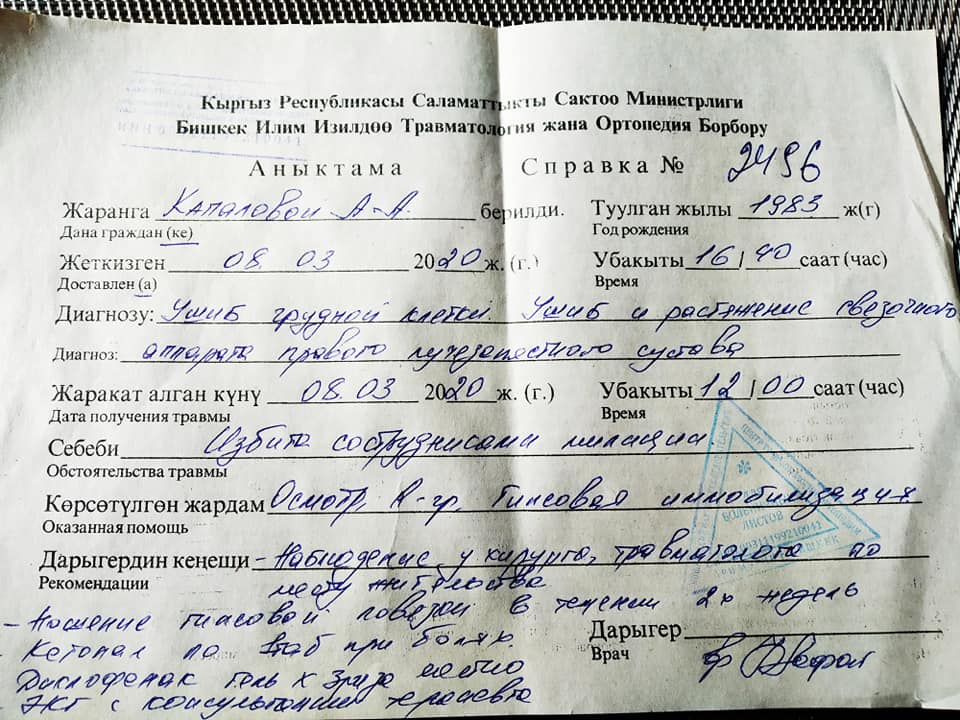 Кыргыз Республикасы Саламаттыкты Сактоо Министрлиги
Бишкек Илим Изилдөө Травматология жана Ортопедия Борбору
Аныктама Справка № 2496
Жаранга Капаловой А-А. берилди. Туулган жылы 1983 ж(г)
Дана граждан (ке) Год рождения
Жеткизген 08. 03 2020 ж. (г.) Убакыты 16/40 саат (час)
Доставлен (а) Время
Диагнозу: Ушиб грудной клетки. Ушиб и растяжение связочного
Диагноз: аппарата правого лучезапястного сустава
Жаракат алган күнү 08.03 2020 ж. (г.) Убакыты 12/00 саат (час)
Дата получения травмы Время
Себеби Избита сотрудниками милиции
Обстоятельства травмы
Көрсөтүлгөн жардам Осмотр, R-гр. Гипсовая иммобилизация
Оказанная помощь
Дарыгердин кеңеши - Наблюдение у хирурга, травматолога по
Рекомендации месту жительства
- Ношение гипсовой в течении 2х недель
- Кетонал по 1таб при болях. Дарыгер
Врач
Диклофенак гель х 3 раза местно
- ЭКГ с консультацией терапевта
БОЛЬНИЧНЫХ
ЛИСТОВ